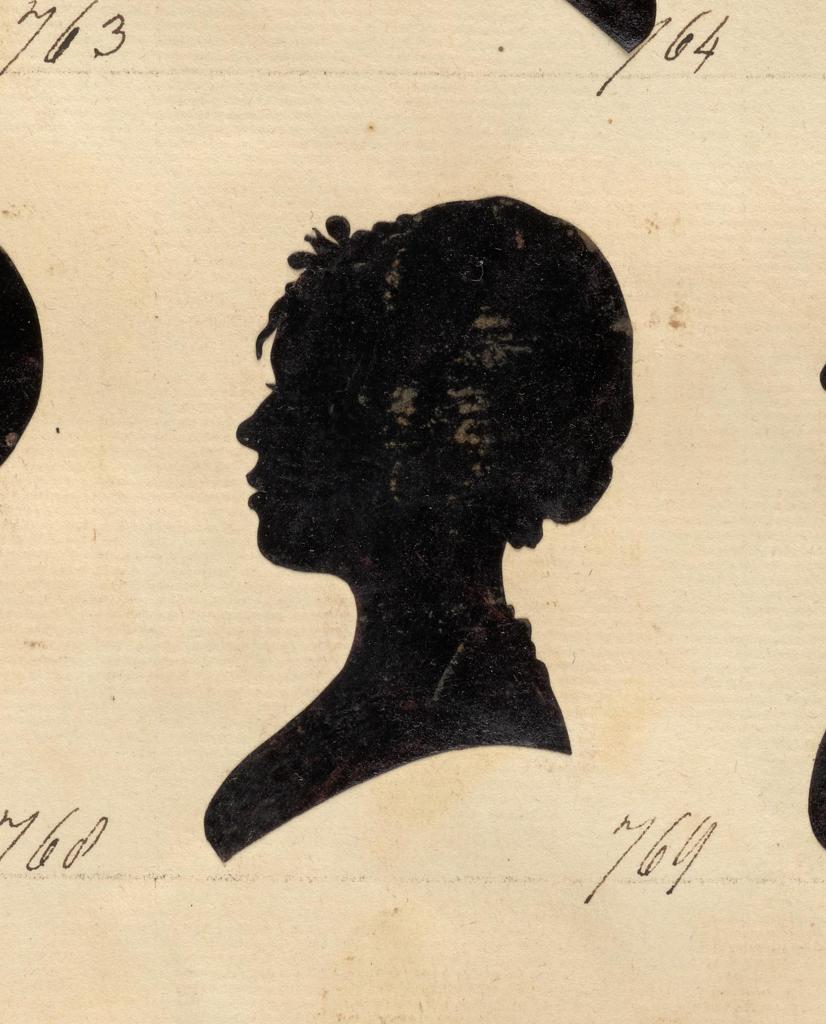 763 764
768 769